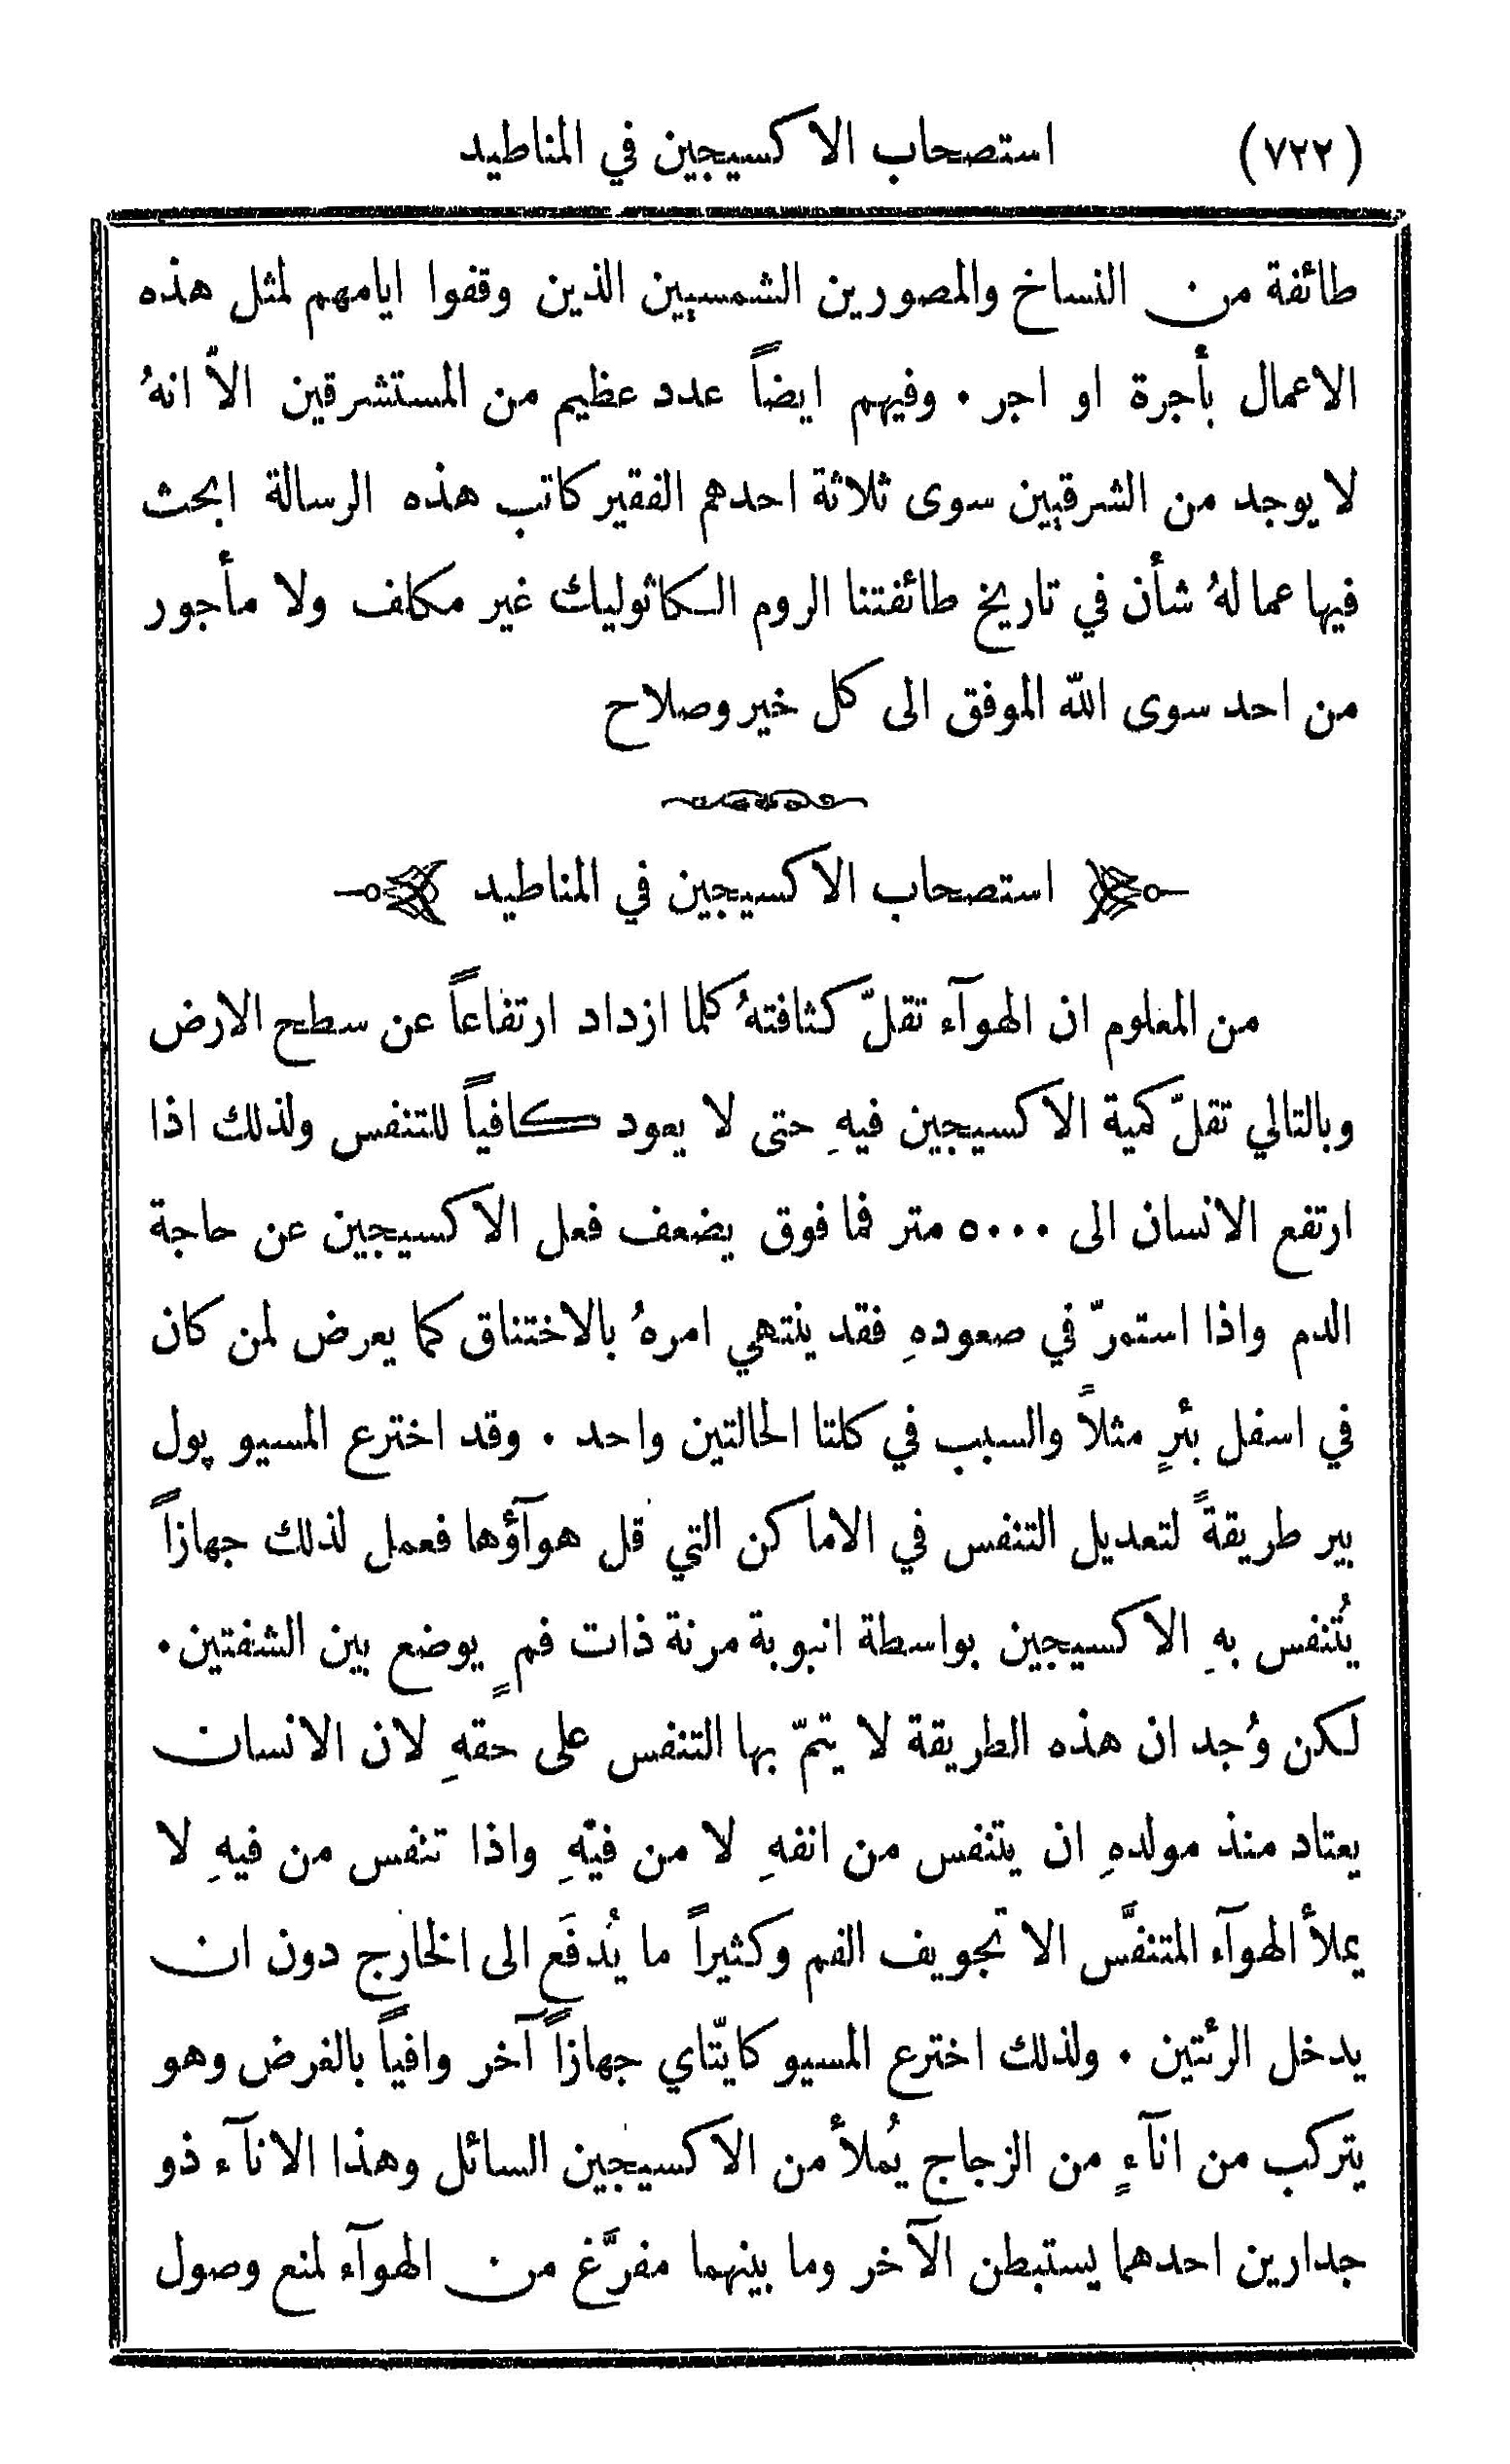 (٧٢٢) استصحاب الاكسيجين في المناطيد
طائفة من النساخ والمصورين الشمسيين الذين وقفوا ايامهم لمثل هذه
الاعمال بأجرة او اجر ٠ وفيهم ايضاً عدد عظيم من المستشرقين الاّ انهُ
لا يوجد من الشرقيين سوى ثلاثة احدهم الفقير كاتب هذه الرسالة ابحث
فيها عما لهُ شأن في تاريخ طائفتنا الروم الكاثوليك غير مكلف ولا مأجور
من احد سوى الله الموفق الى كل خير وصلاح
استصحاب الاكسيجين في المناطيد
من المعلوم ان الهوآء تقلّ كثافتهُ كلما ازداد ارتفاعاً عن سطح الارض
وبالتالي تقلّ كمية الاكسيجين فيهِ حتى لا يعود كافياً للتنفس ولذلك اذا
ارتفع الانسان الى ٥٠٠٠ متر فما فوق يضعف فعل الاكسيجين عن حاجة
الدم واذا استمرّ في صعودهِ فقد ينتهي امرهُ بالاختناق كما يعرض لمن كان
في اسفل بئرٍ مثلاً والسبب في كلتا الحالتين واحد ٠ وقد اخترع المسيو پول
بير طريقةً لتعديل التنفس في الاماكن التي قل هوآؤها فعمل لذلك جهازاً
يُتنفس بهِ الاكسيجين بواسطة انبوبة مرنة ذات فمٍ يوضع بين الشفتين ٠
لكن وُجد ان هذه الطريقة لا يتمّ بها التنفس على حقهِ لان الانسان
يعتاد منذ مولدهِ ان يتنفس من انفهِ لا من فيهِ واذا تنفس من فيهِ لا
يملأ الهوآء المتنفَّس الا تجويف الفم وكثيراً ما يُدفَع الى الخارج دون ان
يدخل الرئتين ٠ ولذلك اخترع المسيو كايّتاي جهازاً آخر وافياً بالغرض وهو
يتركب من انآءٍ من الزجاج يُملأ من الاكسيجين السائل وهذا الانآء ذو
جدارين احدهما يستبطن الآخر وما بينهما مفرَّغ من الهوآء لمنع وصول